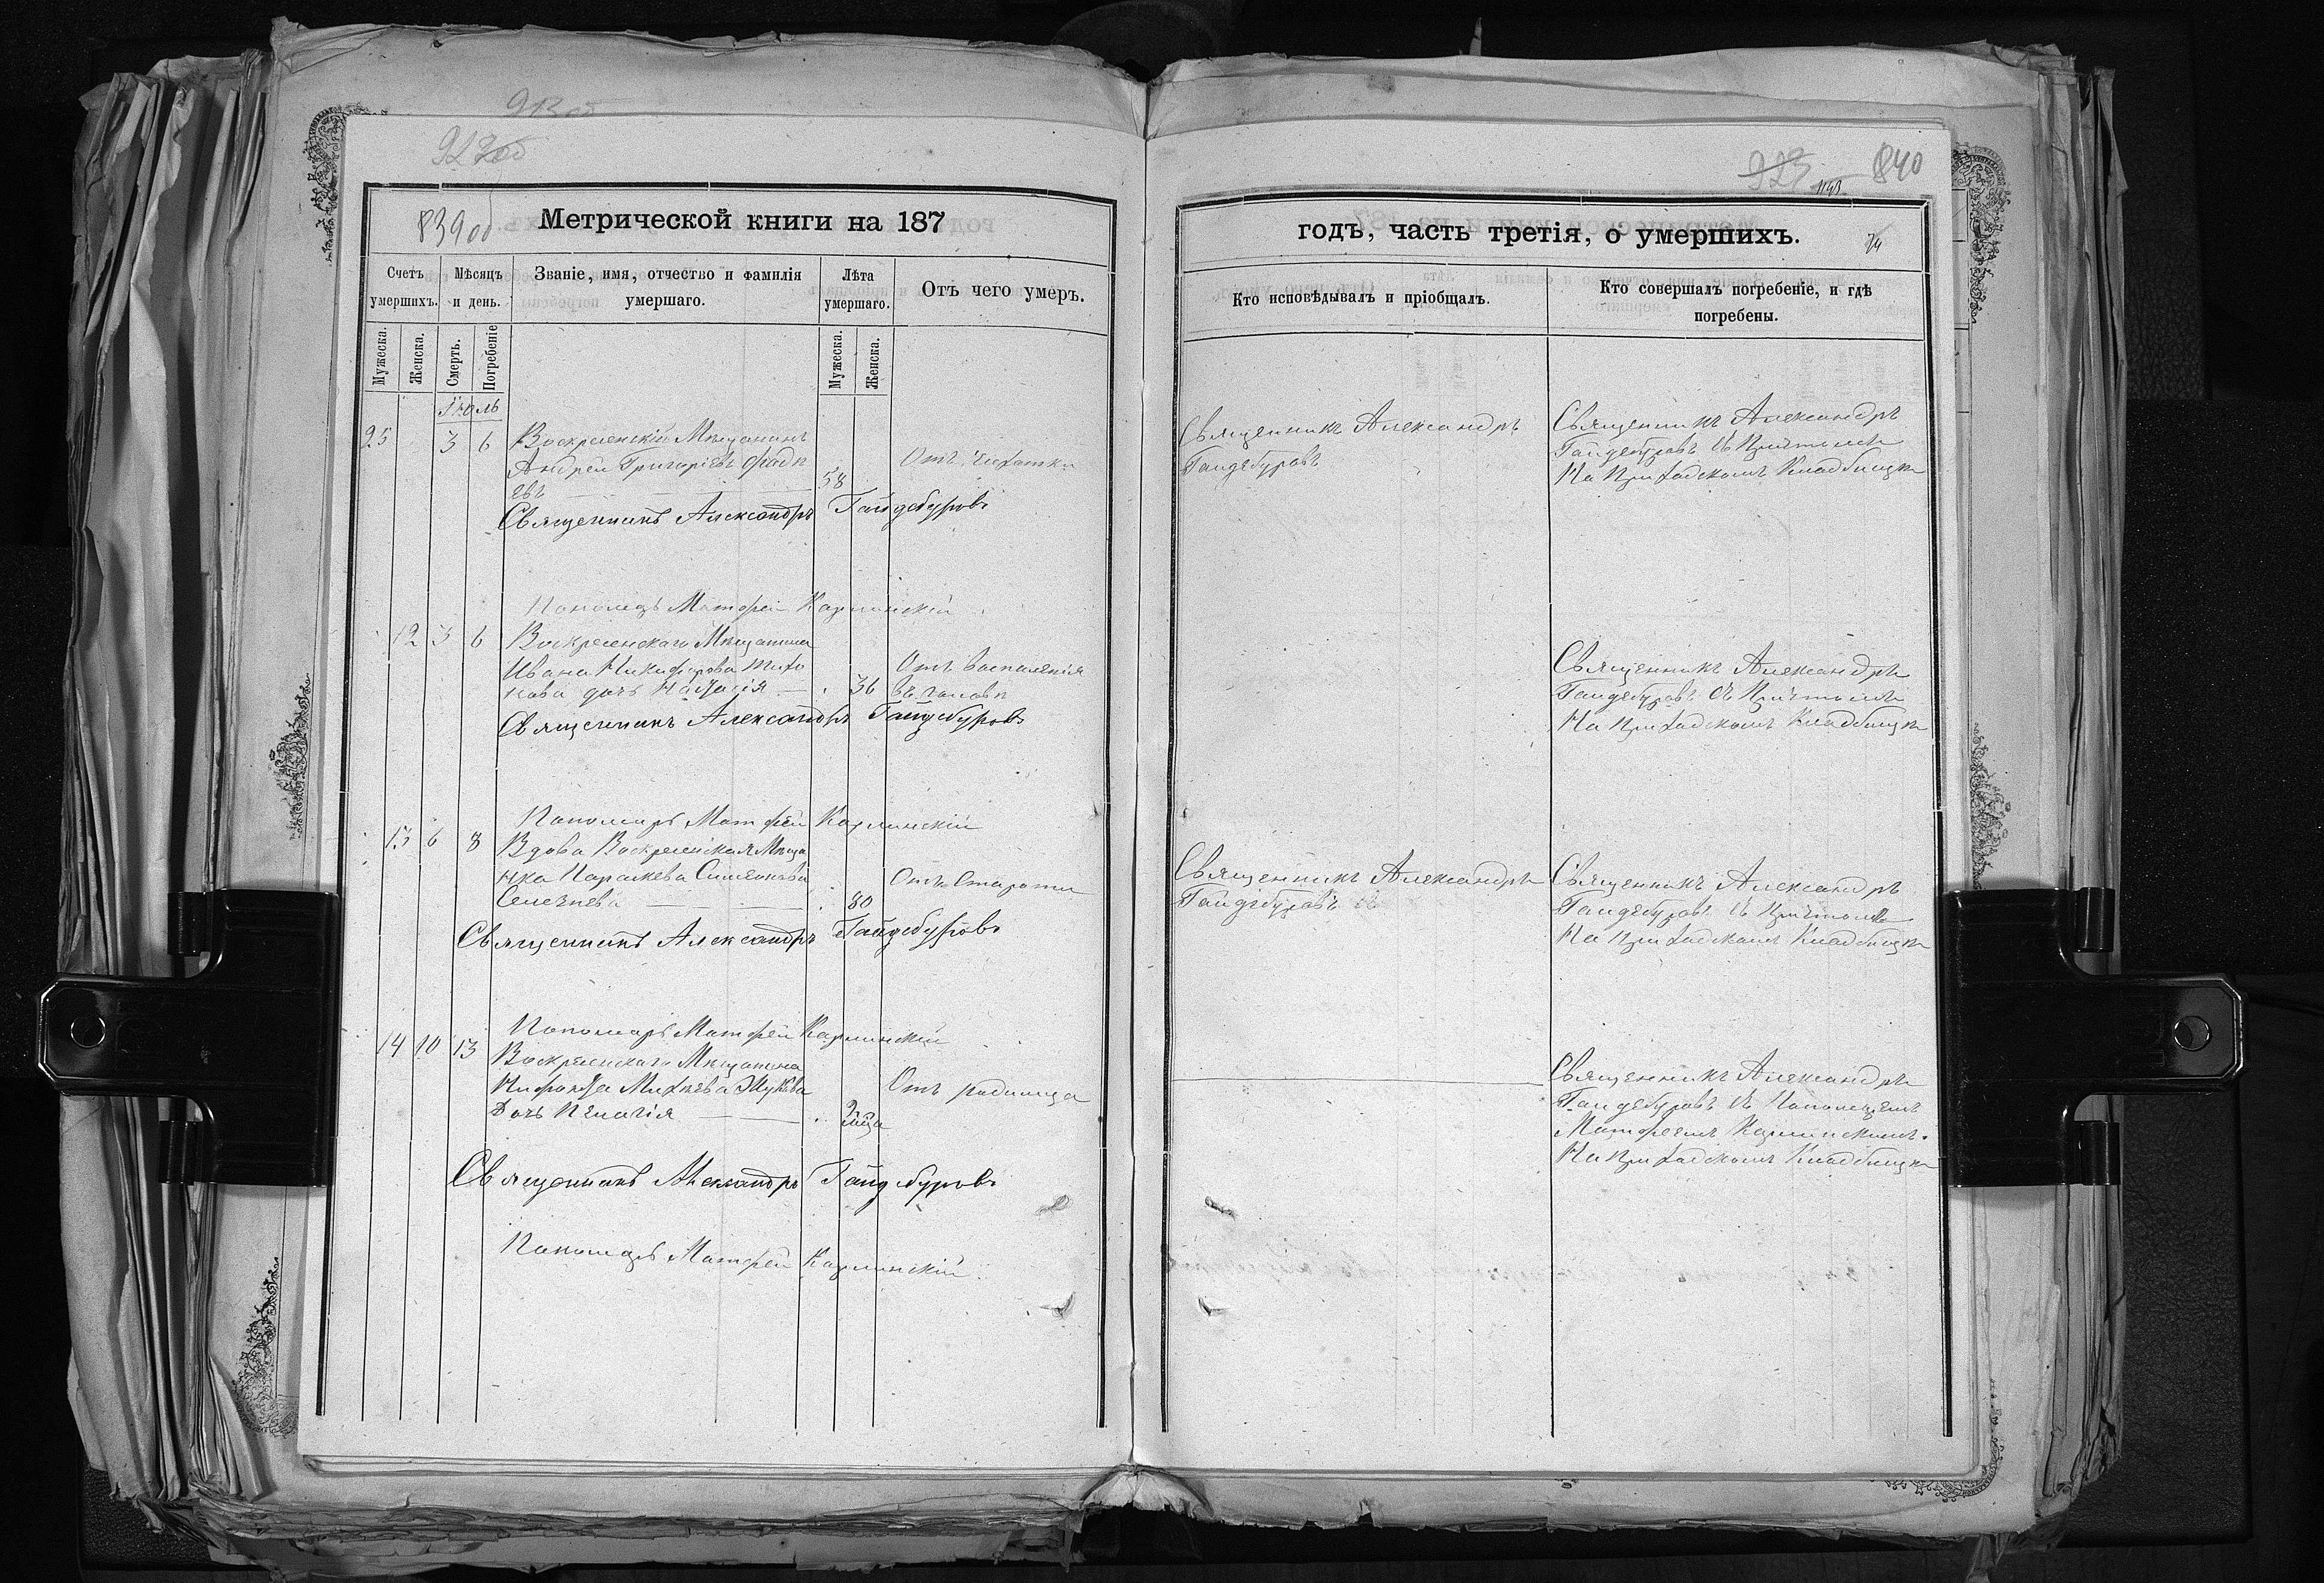 913об
922об
839об
Метрической книги на 187
Счетъ умершихъ.
Мѣсяцъ и день.
Званіе, имя, отчество и фамилія умершаго.
Лѣта умершаго.
Отъ чего умеръ.
Мужеска.
Женска.
Смерть.
Погребеніе
Мужеска.
Женска.
Іюль
25 3 6 Воскресенскій Мѣщанинъ
Андрей Григоріевъ Фадѣ
евъ 58 Отъ Чахотки
Священникъ Александръ Гайдебуровъ
Пономарь Матфей Карпинскій
12 3 6 Воскресенскаго Мѣщанина
Ивана Никифорова Тихо
нова дочь 36 Отъ воспаленія
въ головѣ
Священникъ Александръ Гайдебуровъ
Пономарь Матфей Карпинскій
13 6 8 Вдова Воскресенская Мѣща
нка Параскева Симеонова
Селезнева 80 Отъ Старости
Священникъ Александръ Гайдебуровъ
Пономарь Матфей Карпинскій
14 10 13 Воскресенскаго Мѣщанина
Михѣева Жукова
Дочь Пелагія 2 мѣца Отъ родимца
Священникъ Александръ Гайдебуровъ
Пономарь Матфей Карпинскій
923 840
1143
годъ, часть третія, о умершихъ.
74
Кто исповѣдывалъ и пріобщалъ.
Кто совершалъ погребеніе, и гдѣ
погребены.
Священникъ Александръ
Гайдебуровъ
Священникъ Александръ
Гайдебуровъ съ Причтомъ
На Приходскомъ Кладбищѣ
Священникъ Александръ
Гайдебуровъ съ Причтомъ
На Приходскомъ Кладбищѣ
Священникъ Александръ
Гайдебуровъ
Священникъ Александръ
Гайдебуровъ съ Причтомъ
На Приходскомъ Кладбищѣ
Священникъ Александръ
Гайдебуровъ съ Пономаремъ
Матфеемъ Карпинскимъ.
На Приходскомъ Кладбищѣ